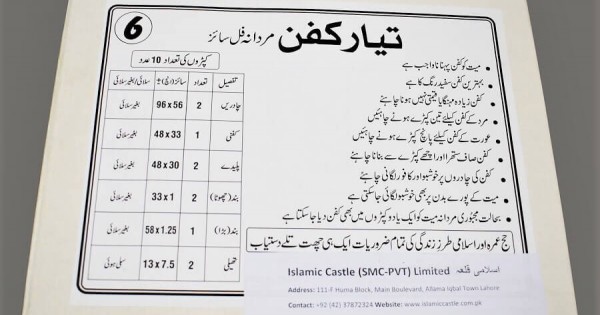 6
تیار کفن مردانہ فل سائز
میت کو کفن پہنانا واجب ہے
بہترین کفن سفید رنگ کا ہے
کفن زیادہ مہنگا یا قیمتی نہیں ہونا چاہئے
مرد کے کفن کیلئے تین کپڑے ہونے چاہئیں
عورت کے کفن کیلئے پانچ کپڑے ہونے چاہئیں
کفن صاف ستھرا اور اچھے کپڑے سے بنانا چاہئے
کفن کی چادروں پر خوشبو اور کافور لگانی چاہئے
میت کے پورے بدن پر بھی خوشبو لگائی جاسکتی ہے
بحالت مجبوری مردانہ میت کو ایک یا دو کپڑوں میں بھی کفن دیا جا سکتا ہے
کپڑوں کی تعداد 10 عدد
تفصیل تعداد سائز (انچ) ± سلائی/بغیر سلائی
چادریں 2 96 x 56 بغیر سلائی
کفنی 1 48 x 33 بغیر سلائی
پلیدے 2 48 x 30 بغیر سلائی
بند (چھوٹا) 2 33 x 1 بغیر سلائی
بند (بڑا) 1 58 x 1.25 بغیر سلائی
تھیلی 2 13 x 7.5 سلی ہوئی
حج عمرہ اور اسلامی طرز زندگی کی تمام ضروریات ایک ہی چھت تلے دستیاب
Islamic Castle (SMC-PVT) Limited اسلامی قلعہ
Address: 111-F Huma Block, Main Boulevard, Allama Iqbal Town Lahore
Contact: +92 (42) 37872324 Website: www.islamiccastle.com.pk